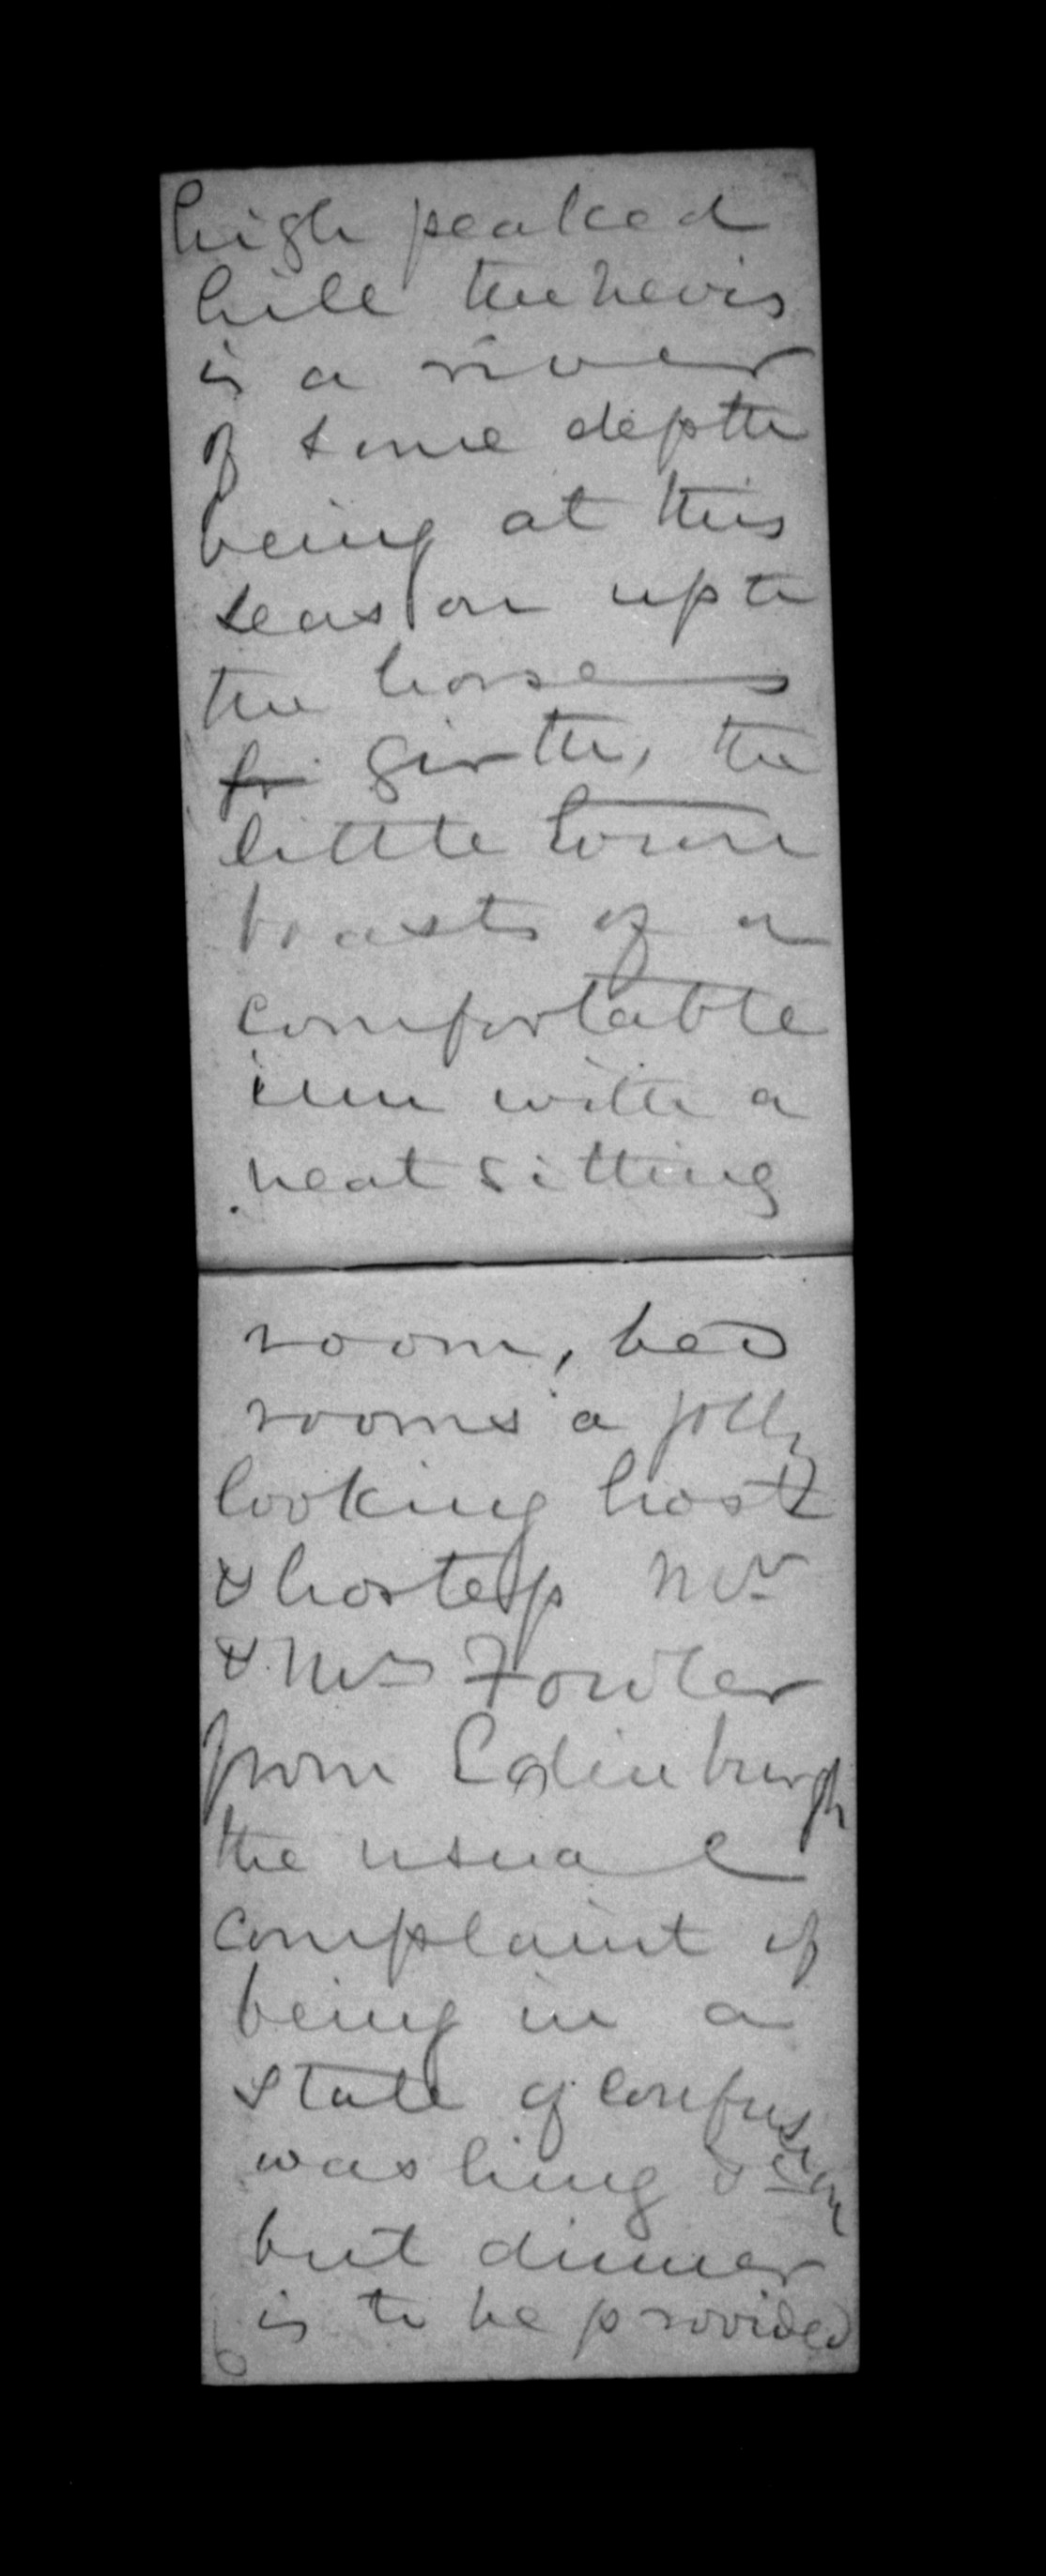 high peaked
hill the nevis
is a river
of some depth
being at this
season up to
the horses
girth, the
little town
boasts of a
comfortable
inn with a
neat sitting
room, bed
rooms a jolly
looking host
& hostess Mr
& Mrs Fowler
from Edinburgh
the usual
complaint of
being in a
state of confusion
washing &c
but dinner
is to be provided